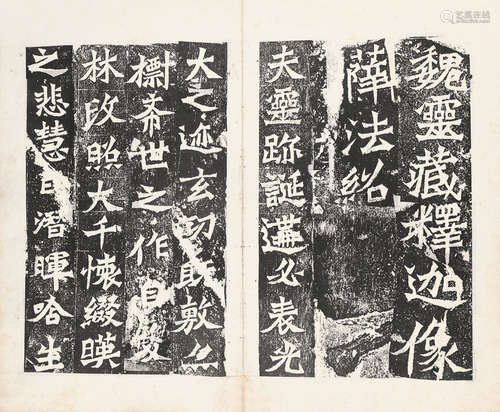 魏靈藏釋迦像
薛法紹
夫靈跡誕遘必表光
大之迹玄功既敷亦
標希世之作自雙
林改照大千懷綴暎
之悲慧日潛暉唅生